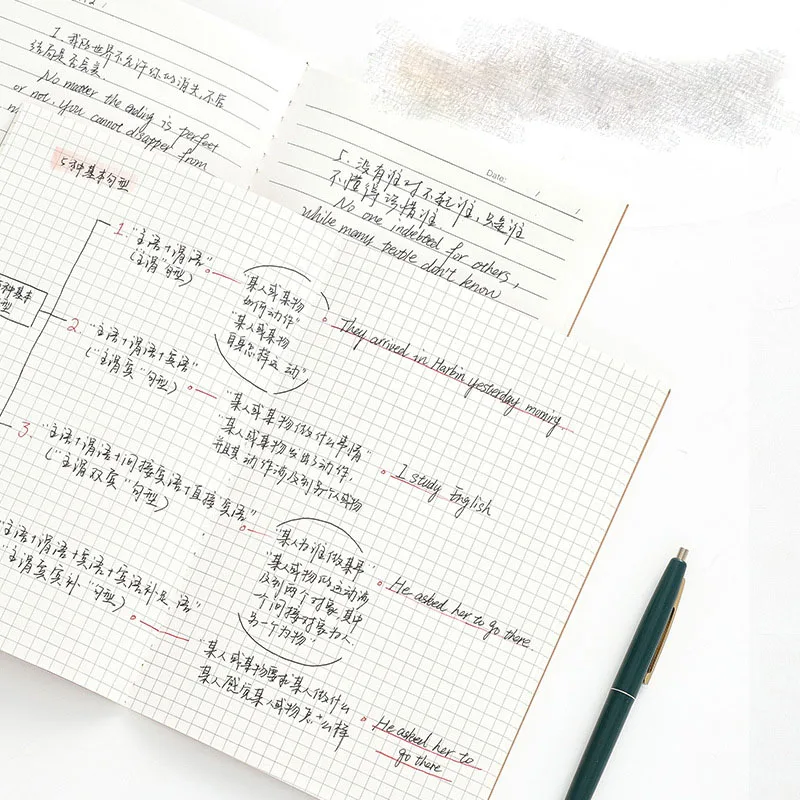 1. 我的世界不允许你的消失,不管
结局是否完美.
No matter the ending is perfect
or not. You cannot disapper from
Date: / /
5. 没有谁对不起谁,只是谁
不懂得珍惜谁.
No one indebted for others,
while many people don't know
5种基本句型
种基本
句型
1. "主语+谓语"
(主谓"句型)
"某人或某物
如何动作"
"某人或某物
自身怎样运动"
They arrived in Harbin yesterday morning.
2. "主语+谓语+宾语"
("主谓宾"句型)
"某人或某物做什么事情"
"某人或某物发出了动作,
并且其动作涉及到另个人或物
I study English
3. "主语+谓语+间接宾语+直接宾语"
("主谓双宾"句型)
"某人为谁做某事"
"某人或物的运动涉
及到两个对象,其中
一个间接对象为人.
另一个为物"
He asked her to go there.
"主语+谓语+宾语+宾语补足语"
"主谓宾宾补"句型)
"某人或某物要求某人做什么
某人感觉某人或物怎么样
He asked her to
go there